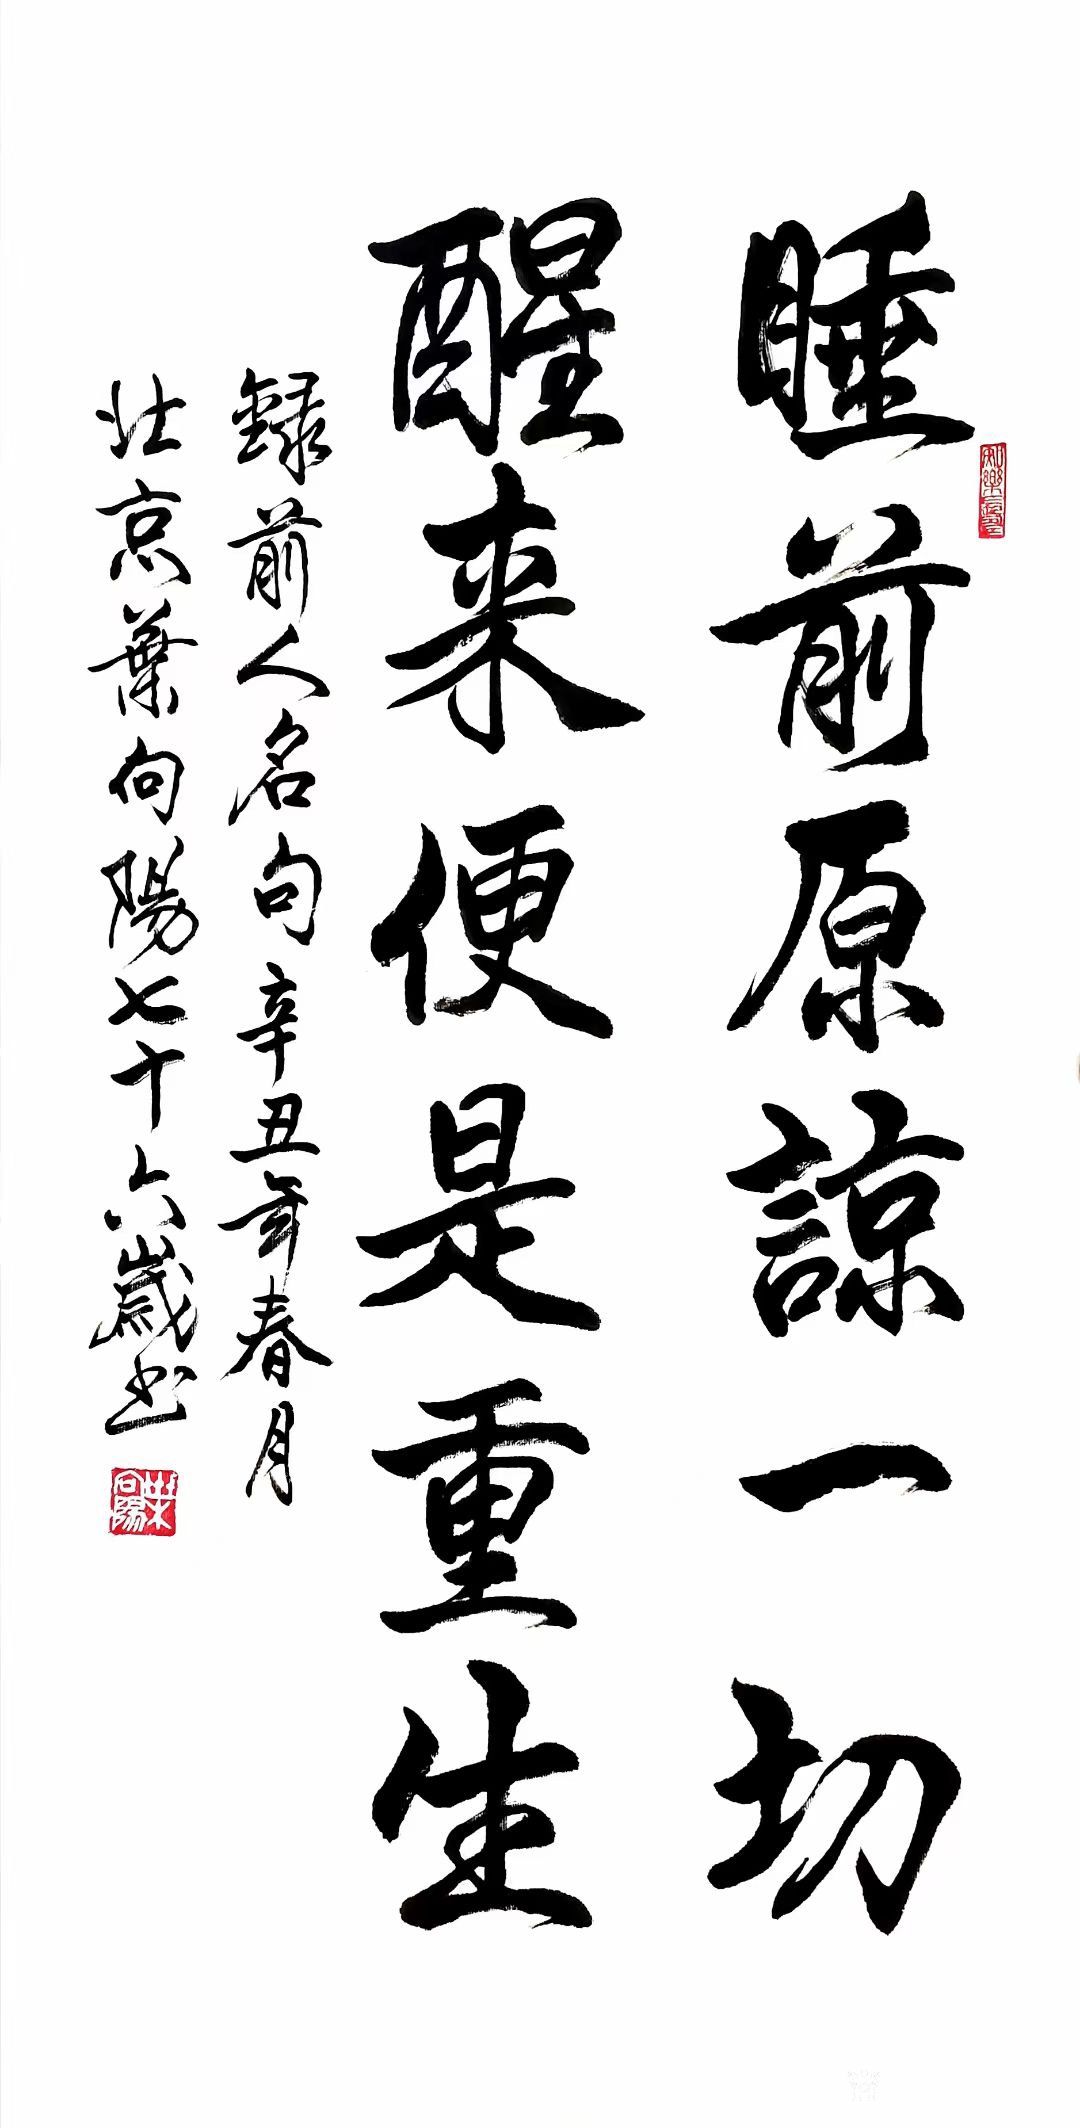 睡前原諒一切
醒来便是重生
録前人名句辛丑年春月
北京葉向陽七十六歲书
葉向陽